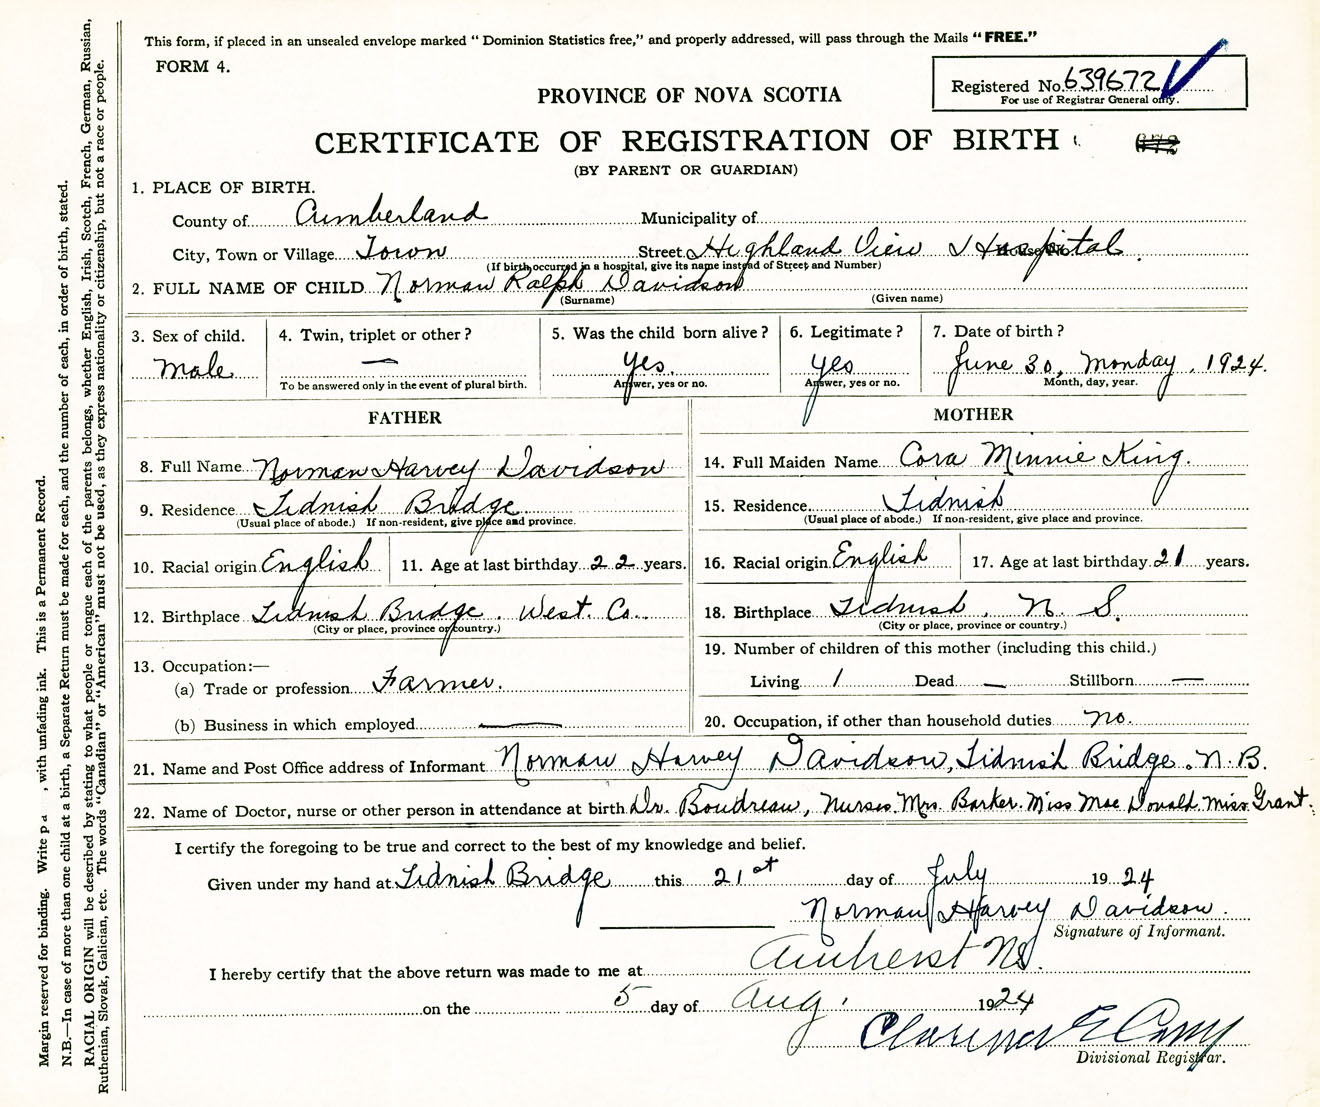 This form, if placed in an unsealed envelope marked " Dominion Statistics free," and properly addressed, will pass through the Mails " FREE."
FORM 4.
Registered No. 639672
For use of Registrar General only.
PROVINCE OF NOVA SCOTIA
CERTIFICATE OF REGISTRATION OF BIRTH
(BY PARENT OR GUARDIAN)
1. PLACE OF BIRTH.
County of Cumberland Municipality of
City, Town or Village Town Street Highland View Hospital.
(If birth occurred in a hospital, give its name instead of Street and Number)
2. FULL NAME OF CHILD Norman Ralph Davidson
(Surname) (Given name)
3. Sex of child. 4. Twin, triplet or other? 5. Was the child born alive? 6. Legitimate? 7. Date of birth?
Male — Yes. Yes June 30, Monday, 1924.
To be answered only in the event of plural birth. Answer, yes or no. Answer, yes or no. Month, day, year.
FATHER
8. Full Name Norman Harvey Davidson
9. Residence Tidnish Bridge
(Usual place of abode.) If non-resident, give place and province.
10. Racial origin English 11. Age at last birthday 22 years.
12. Birthplace Tidnish Bridge. West. Co.
(City or place, province or country.)
13. Occupation:—
(a) Trade or profession Farmer.
(b) Business in which employed —
MOTHER
14. Full Maiden Name Cora Minnie King.
15. Residence Tidnish
(Usual place of abode.) If non-resident, give place and province.
16. Racial origin English 17. Age at last birthday 21 years.
18. Birthplace Tidnish, N. S.
(City or place, province or country.)
19. Number of children of this mother (including this child.)
Living 1 Dead — Stillborn —
20. Occupation, if other than household duties no.
21. Name and Post Office address of Informant Norman Harvey Davidson, Tidnish Bridge. N. B.
22. Name of Doctor, nurse or other person in attendance at birth Dr. Boudreau, Nurses. Mrs. Barker. Miss Mac Donald. Miss Grant.
I certify the foregoing to be true and correct to the best of my knowledge and belief.
Given under my hand at Tidnish Bridge this 21st day of July 1924
Norman Harvey Davidson.
Signature of Informant.
I hereby certify that the above return was made to me at Amherst NS.
on the 5 day of Aug. 1924
Clarence E
Divisional Registrar.
Margin reserved for binding. Write , with unfading ink. This is a Permanent Record.
N.B.—In case of more than one child at a birth, a Separate Return must be made for each, and the number of each, in order of birth, stated.
RACIAL ORIGIN will be described by stating to what people or tongue each of the parents belongs, whether English, Irish, Scotch, French, German, Russian,
Ruthenian, Slovak, Galician, etc. The words "Canadian" or "American" must not be used, as they express nationality or citizenship, but not a race or people.